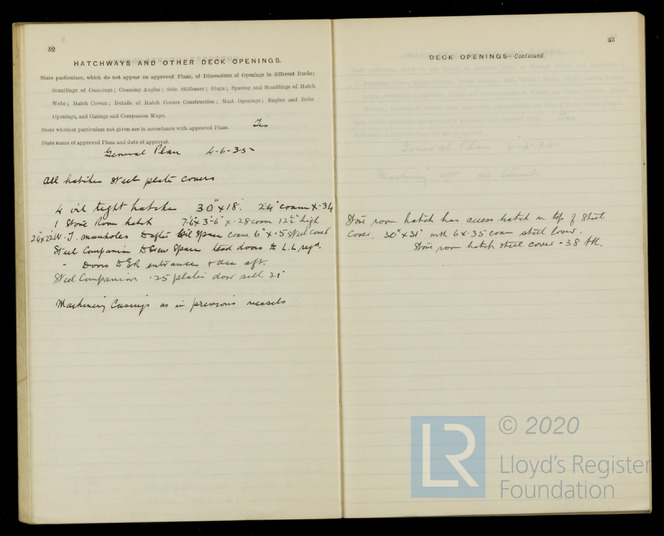 52
HATCHWAYS AND OTHER DECK OPENINGS.
State particulars, which do not appear on approved Plans, of Dimensions of Openings in different Decks;
Scantlings of Coamings; Coaming Angles; Side Stiffeners; Stays; Spacing and Scantlings of Hatch
Webs; Hatch Covers; Details of Hatch Corner Construction; Mast Openings; Engine and Boiler
Openings, and Casings and Companion Ways.
State whether particulars not given are in accordance with approved Plans. Yes
State name of approved Plans and date of approval.
General Plan 4-6-35
All hatches steel plate covers
4 oil tight hatches 30" x 18" 24" coam x .34
1 Store Room hatch 7'6" x 3'6" x .28 coam 12½" high
W.T. manholes to after space coam 6" x .5 steel cover
Steel Companion to space lead doors to L.L. reqd.
" Doors to E.R. entrance aft.
Steel Companion .25 plates door sill 21"
Machinery Casings as in previous vessels
53
DECK OPENINGS—Continued.
Store room hatch has access hatch in top of steel
cover. 30" x 31" with 6 x .35 coam steel cover.
Store room hatch steel cover .38 thk.
LR
© 2020
Lloyd's Register
Foundation